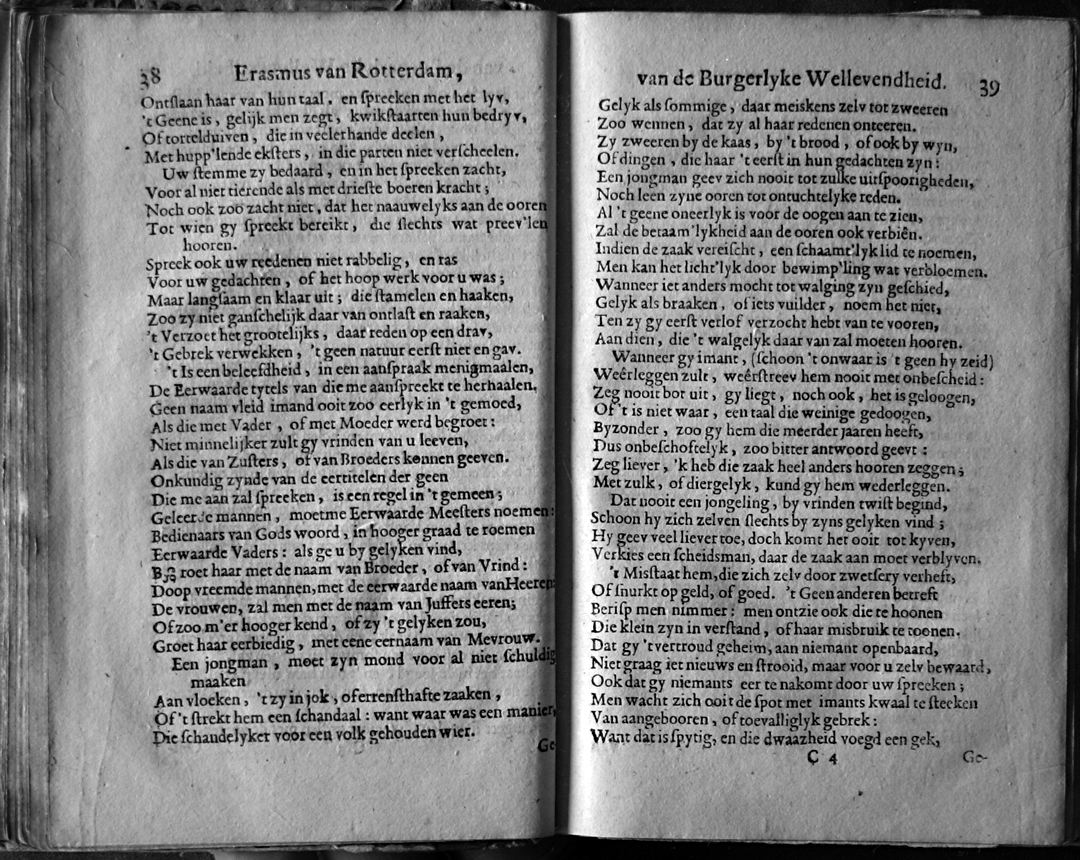 38 Erasmus van Rotterdam,
Ontſlaan haar van hun taal, en ſpreeken met het lyv,
't Geene is, gelijk men zegt, kwikſtaarten hun bedryv,
Of tortelduiven, die in veelerhande deelen,
Met hupp'lende ekſters, in die parten niet verſcheelen.
Uw ſtemme zy bedaard, en in het ſpreeken zacht,
Voor al niet tierende als met drieſte boeren kracht;
Noch ook zoo zacht niet, dat het naauwelyks aan de ooren
Tot wien gy ſpreekt bereikt, die ſlechts wat preev'len
hooren.
Spreek ook uw reedenen niet rabbelig, en ras
Voor uw gedachten, of het hoop werk voor u was;
Maar langſaam en klaar uit; die ſtamelen en haaken,
Zoo zy niet ganſchelijk daar van ontlaſt en raaken,
't Verzoet het grootelijks, daar reden op een drav,
't Gebrek verwekken, 't geen natuur eerſt niet en gav.
't Is een beleefdheid, in een aanſpraak menigmaalen,
De Eerwaarde tytels van die me aanſpreekt te herhaalen,
Geen naam vleid imand ooit zoo eerlyk in 't gemoed,
Als die met Vader, of met Moeder werd begroet:
Niet minnelijker zult gy vrinden van u leeven,
Als die van Zuſters, of van Broeders kennen geeven.
Onkundig zynde van de eertitelen der geen
Die me aan zal ſpreeken, is een regel in 't gemeen;
Geleerde mannen, moetme Eerwaarde Meeſters noemen:
Bedienaars van Gods woord, in hooger graad te roemen
Eerwaarde Vaders: als ge u by gelyken vind,
Begroet haar met de naam van Broeder, of van Vrind:
Doop vreemde mannen, met de eerwaarde naam van Heeren:
De vrouwen, zal men met de naam van Juffers eeren;
Of zoo m'er hooger kend, of zy 't gelyken zou,
Groet haar eerbiedig, met eene eernaam van Mevrouw.
Een jongman, moet zyn mond voor al niet ſchuldig
maaken
Aan vloeken, 't zy in jok, of errenſthafte zaaken,
Of 't ſtrekt hem een ſchandaal: want waar was een manier,
Die ſchandelyker voor een volk gehouden wier.
Ge
van de Burgerlyke Wellevendheid. 39
Gelyk als ſommige, daar meiskens zelv tot zweeren
Zoo wennen, dat zy al haar redenen onteeren.
Zy zweeren by de kaas, by 't brood, of ook by wyn,
Of dingen, die haar 't eerſt in hun gedachten zyn:
Een jongman geev zich nooit tot zulke uitſpoorigheden,
Noch leen zyne ooren tot ontuchtelyke reden.
Al 't geene oneerlyk is voor de oogen aan te zien,
Zal de betaam'lykheid aan de ooren ook verbiên.
Indien de zaak vereiſcht, een ſchaamt'lyk lid te noemen,
Men kan het licht'lyk door bewimp'ling wat verbloemen.
Wanneer iet anders mocht tot walging zyn geſchied,
Gelyk als braaken, of iets vuilder, noem het niet,
Ten zy gy eerſt verlof verzocht hebt van te vooren,
Aan dien, die 't walgelyk daar van zal moeten hooren.
Wanneer gy imant, (ſchoon 't onwaar is 't geen hy zeid)
Weêrleggen zult, weêrſtreev hem nooit met onbeſcheid:
Zeg nooit bot uit, gy liegt, noch ook, het is geloogen,
Of 't is niet waar, een taal die weinige gedoogen,
Byzonder, zoo gy hem die meerder jaaren heeft,
Dus onbeſchoftelyk, zoo bitter antwoord geevt:
Zeg liever, 'k heb die zaak heel anders hooren zeggen;
Met zulk, of diergelyk, kund gy hem wederleggen.
Dat nooit een jongeling, by vrinden twiſt begind,
Schoon hy zich zelven ſlechts by zyns gelyken vind;
Hy geev veel liever toe, doch komt het ooit tot kyven,
Verkies een ſcheidsman, daar de zaak aan moet verblyven.
't Misſtaat hem, die zich zelv door zwetſery verheft,
Of ſnurkt op geld, of goed. 't Geen anderen betreft
Beriſp men nimmer: men ontzie ook die te hoonen
Die klein zyn in verſtand, of haar misbruik te toonen.
Dat gy 't vertroud geheim, aan niemant openbaard,
Niet graag iet nieuws en ſtrooid, maar voor u zelv bewaard,
Ook dat gy niemants eer te na komt door uw ſpreeken;
Men wacht zich ooit de ſpot met imants kwaal te ſteeken
Van aangebooren, of toevalliglyk gebrek:
Want dat is ſpytig, en die dwaazheid voegd een gek,
C 4 Ge-